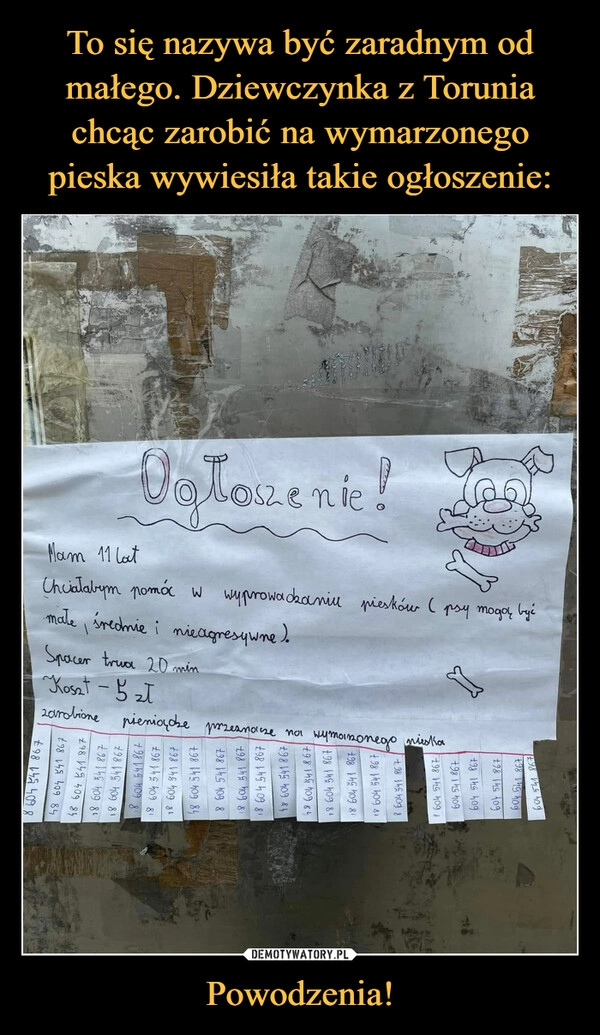 To się nazywa być zaradnym od
małego. Dziewczynka z Torunia
chcąc zarobić na wymarzonego
pieska wywiesiła takie ogłoszenie:
Ogłoszenie!
Mam 11 lat
Chciałabym pomóc w wyprowadzaniu piesków ( psy mogą być
małe, średnie i nieagresywne ).
Spacer trwa 20 min
Koszt - 5 zł
zarobione pieniądze przeznaczę na wymarzonego pieska
8 604 541 867
48 604 541 867
48 604 541 867
18 604 541 867
18 604 541 867
8 604 541 867
18 604 541 867
18 604 541 867
48 604 541 867
8 604 541 867
8 604 541 867
8 604 541 867
48 604 541 867
48 604 541 867
18 604 541 867
18 604 541 867
18 604 541 867
8 604 541 867
1 604 541 867
604 541 867
604 541 867
604 541 867
604 541 867
604 541 867
DEMOTYWATORY.PL
Powodzenia!